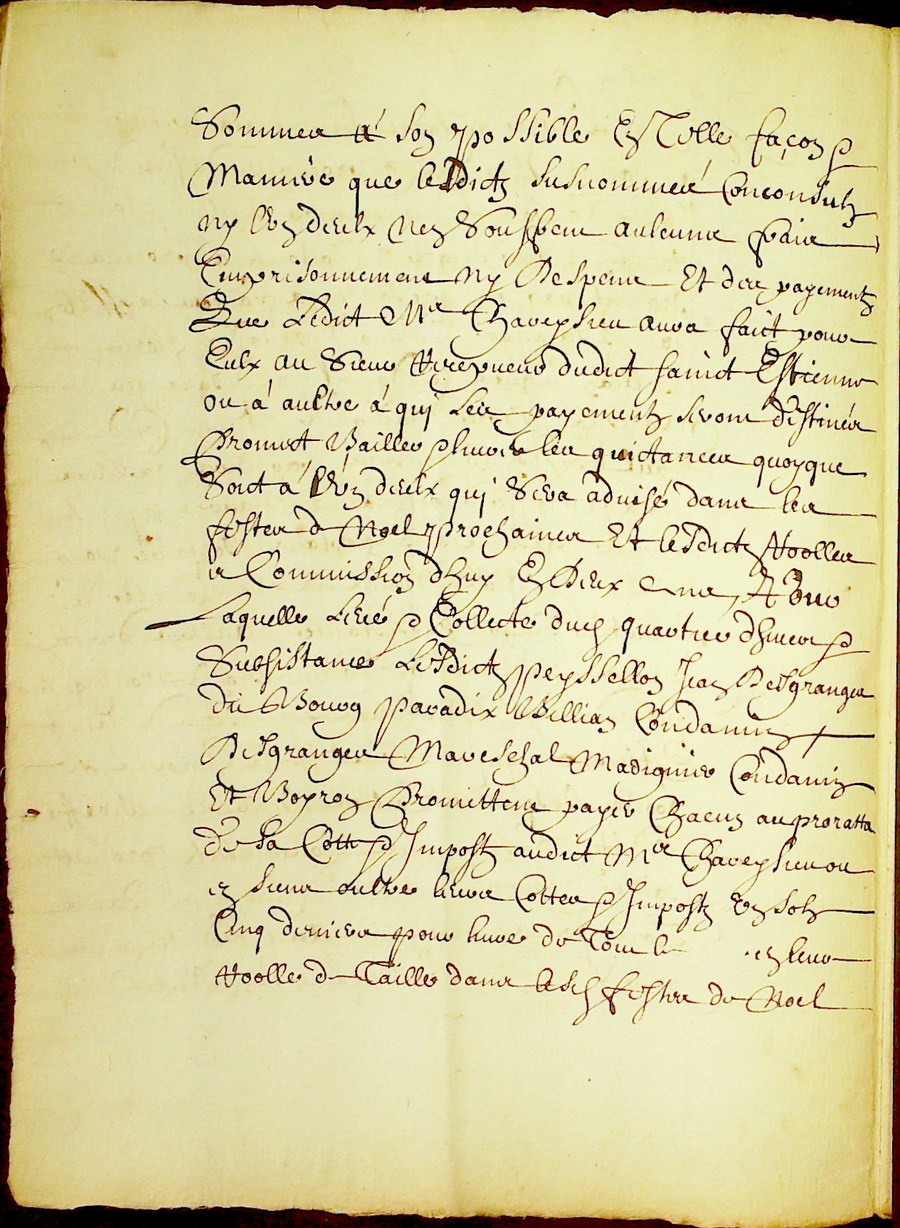 Sommer a son possible En Telle façon &
Maniere que lesdictz susnommés Conconsulz
ny l'un d'eulx n'en Souffrent aulcuns frais
Emprisonnement ny Despens Et des payementz
Que Ledict Mre Chaveysieu aura faict pour
Eulx au Sieur Recepveur dudict sainct Estienne
ou à aultre à qui les payementz seront destinés
Promet Bailler & livrer les quictances quoyque
Soit à l'un d'eulx qui Sera advisé dans les
festes de Noel prochaines Et lesdictz Roolles
et Commission d'huy En Deux
Laquelle Levée & Collecte dud quartier d'hiver &
Subsistance Lesdictz peyssellon Jean Desgranges
du Bourg paradix Willian Condamin
Desgranges Mareschal Madignier Condamin
Et Boyron Promettent payer Chacun au proratta
de sa Cotte & Impost audict Mre Chaveysieu ou
es siens oultre leurs Cottes & Impostz un solz
Cinq deniers pour livre de Tout le en leur
Roolle de Taille dans lesd festes de Noel